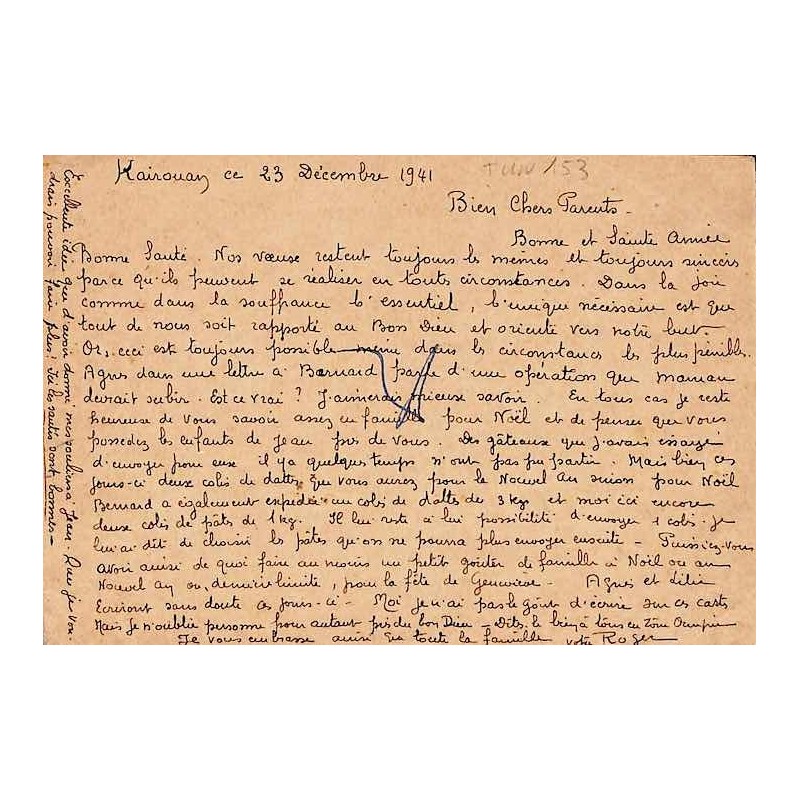 Kairouan ce 23 Décembre 1941
TUN / 153
Bien Chers Parents -
Bonne et Sainte Année
Bonne Santé. Nos vœux restent toujours les mêmes et toujours sincères
parce qu'ils peuvent se réaliser en toutes circonstances. Dans la joie
comme dans la souffrance l'essentiel, l'unique nécessaire est que
tout de nous soit rapporté au Bon Dieu et orienté vers notre but.
Or, ceci est toujours possible même dans les circonstances les plus pénibles.
Agnès dans une lettre à Bernard parle d'une opération que Maman
devrait subir. Est ce vrai ? J'aimerais mieux savoir. En tous cas je reste
heureuse de vous savoir assez en famille pour Noël et de penser que vous
possédez les enfants de Jean près de vous. Des gâteaux que j'avais essayé
d'envoyer pour eux il y a quelques temps n'ont pas pu partir. Mais bien ces
jours-ci deux colis de dattes que vous aurez pour le Nouvel An sinon pour Noël
Bernard a également expédié un colis de dattes de 3 kgs et moi ici encore
deux colis de pâtes de 1 kg. Il lui reste à lui possibilité d'envoyer 1 colis. je
lui ai dit de choisir les pâtes qu'on ne pourra plus envoyer ensuite - Puissiez-vous
avoir ainsi de quoi faire au moins un petit goûter de famille à Noël ou au
Nouvel An ou, dernière limite, pour la fête de Geneviève - Agnès et Lilie
Ecriront sans doute ces jours-ci - Moi je n'ai pas le goût d'écrire sur ces cartes
Mais je n'oublie personne pour autant près du bon Dieu - Dites le bien à tous en Zone Occupée
Je vous embrasse ainsi que toute la famille votre Roger
Excellente idée que d'avoir donné mes souliers à Jean - Que je vou-
drais pouvoir faire plus !